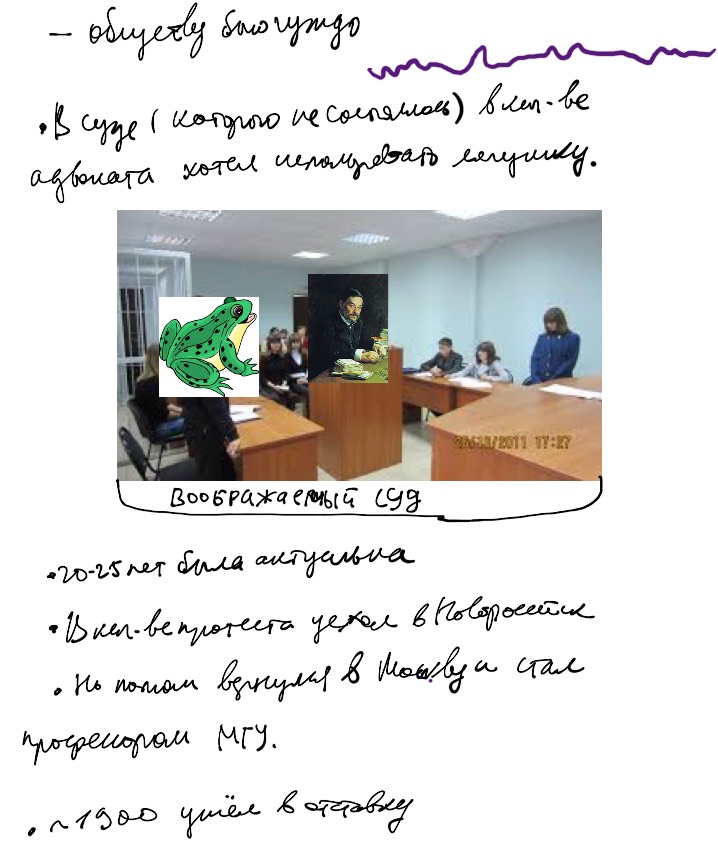 – обществу было чуждо
• В суде (которого не состоялось) в кач-ве
адвоката хотел использовать лягушку.
25/10/2011 17:27
Воображаемый суд
• 20-25 лет была актуальна
• В кач-ве протеста уехал в Новороссийск
• Но потом вернулся в Москву и стал
профессором МГУ.
• ~1900 ушёл в отставку